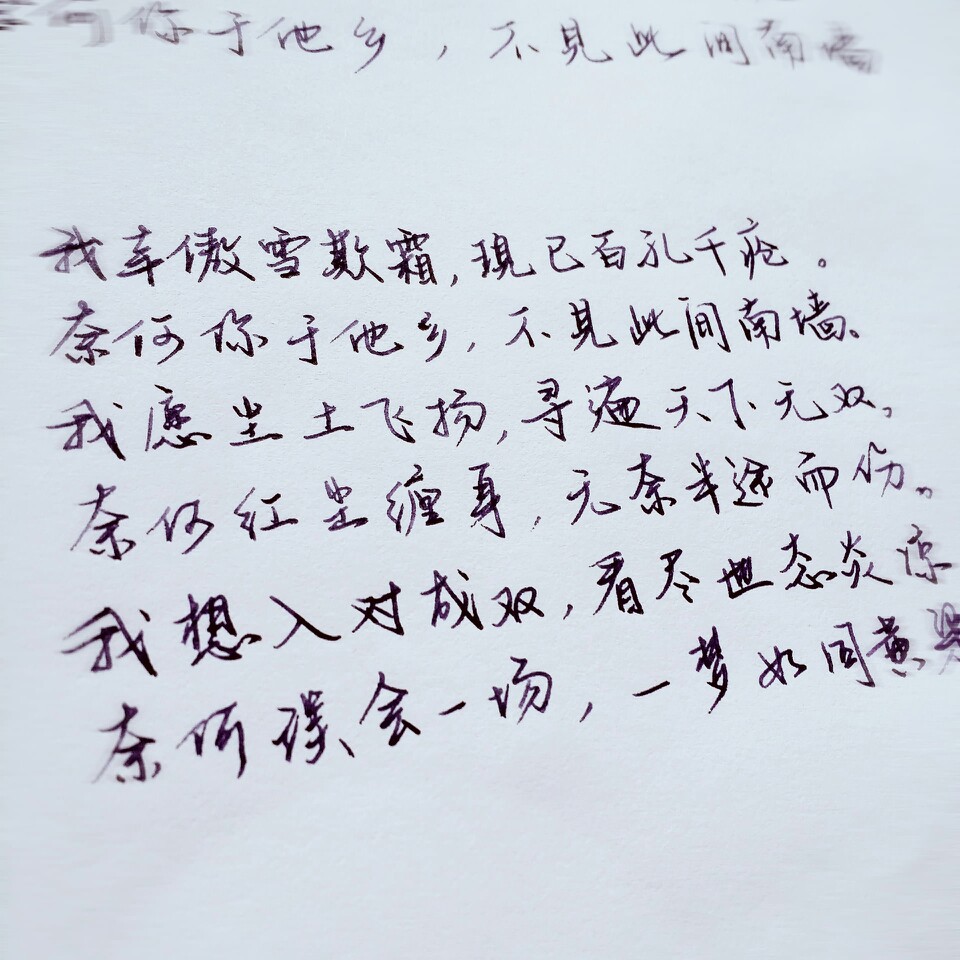 你于他乡，不见此间南墙
我本傲雪欺霜，现已百孔千疮。
奈何你于他乡，不见此间南墙。
我愿尘土飞扬，寻遍天下无双，
奈何红尘缠身，无奈半途而伤。
我想入对成双，看尽世态炎凉
奈何误会一场，一梦如同黄粱